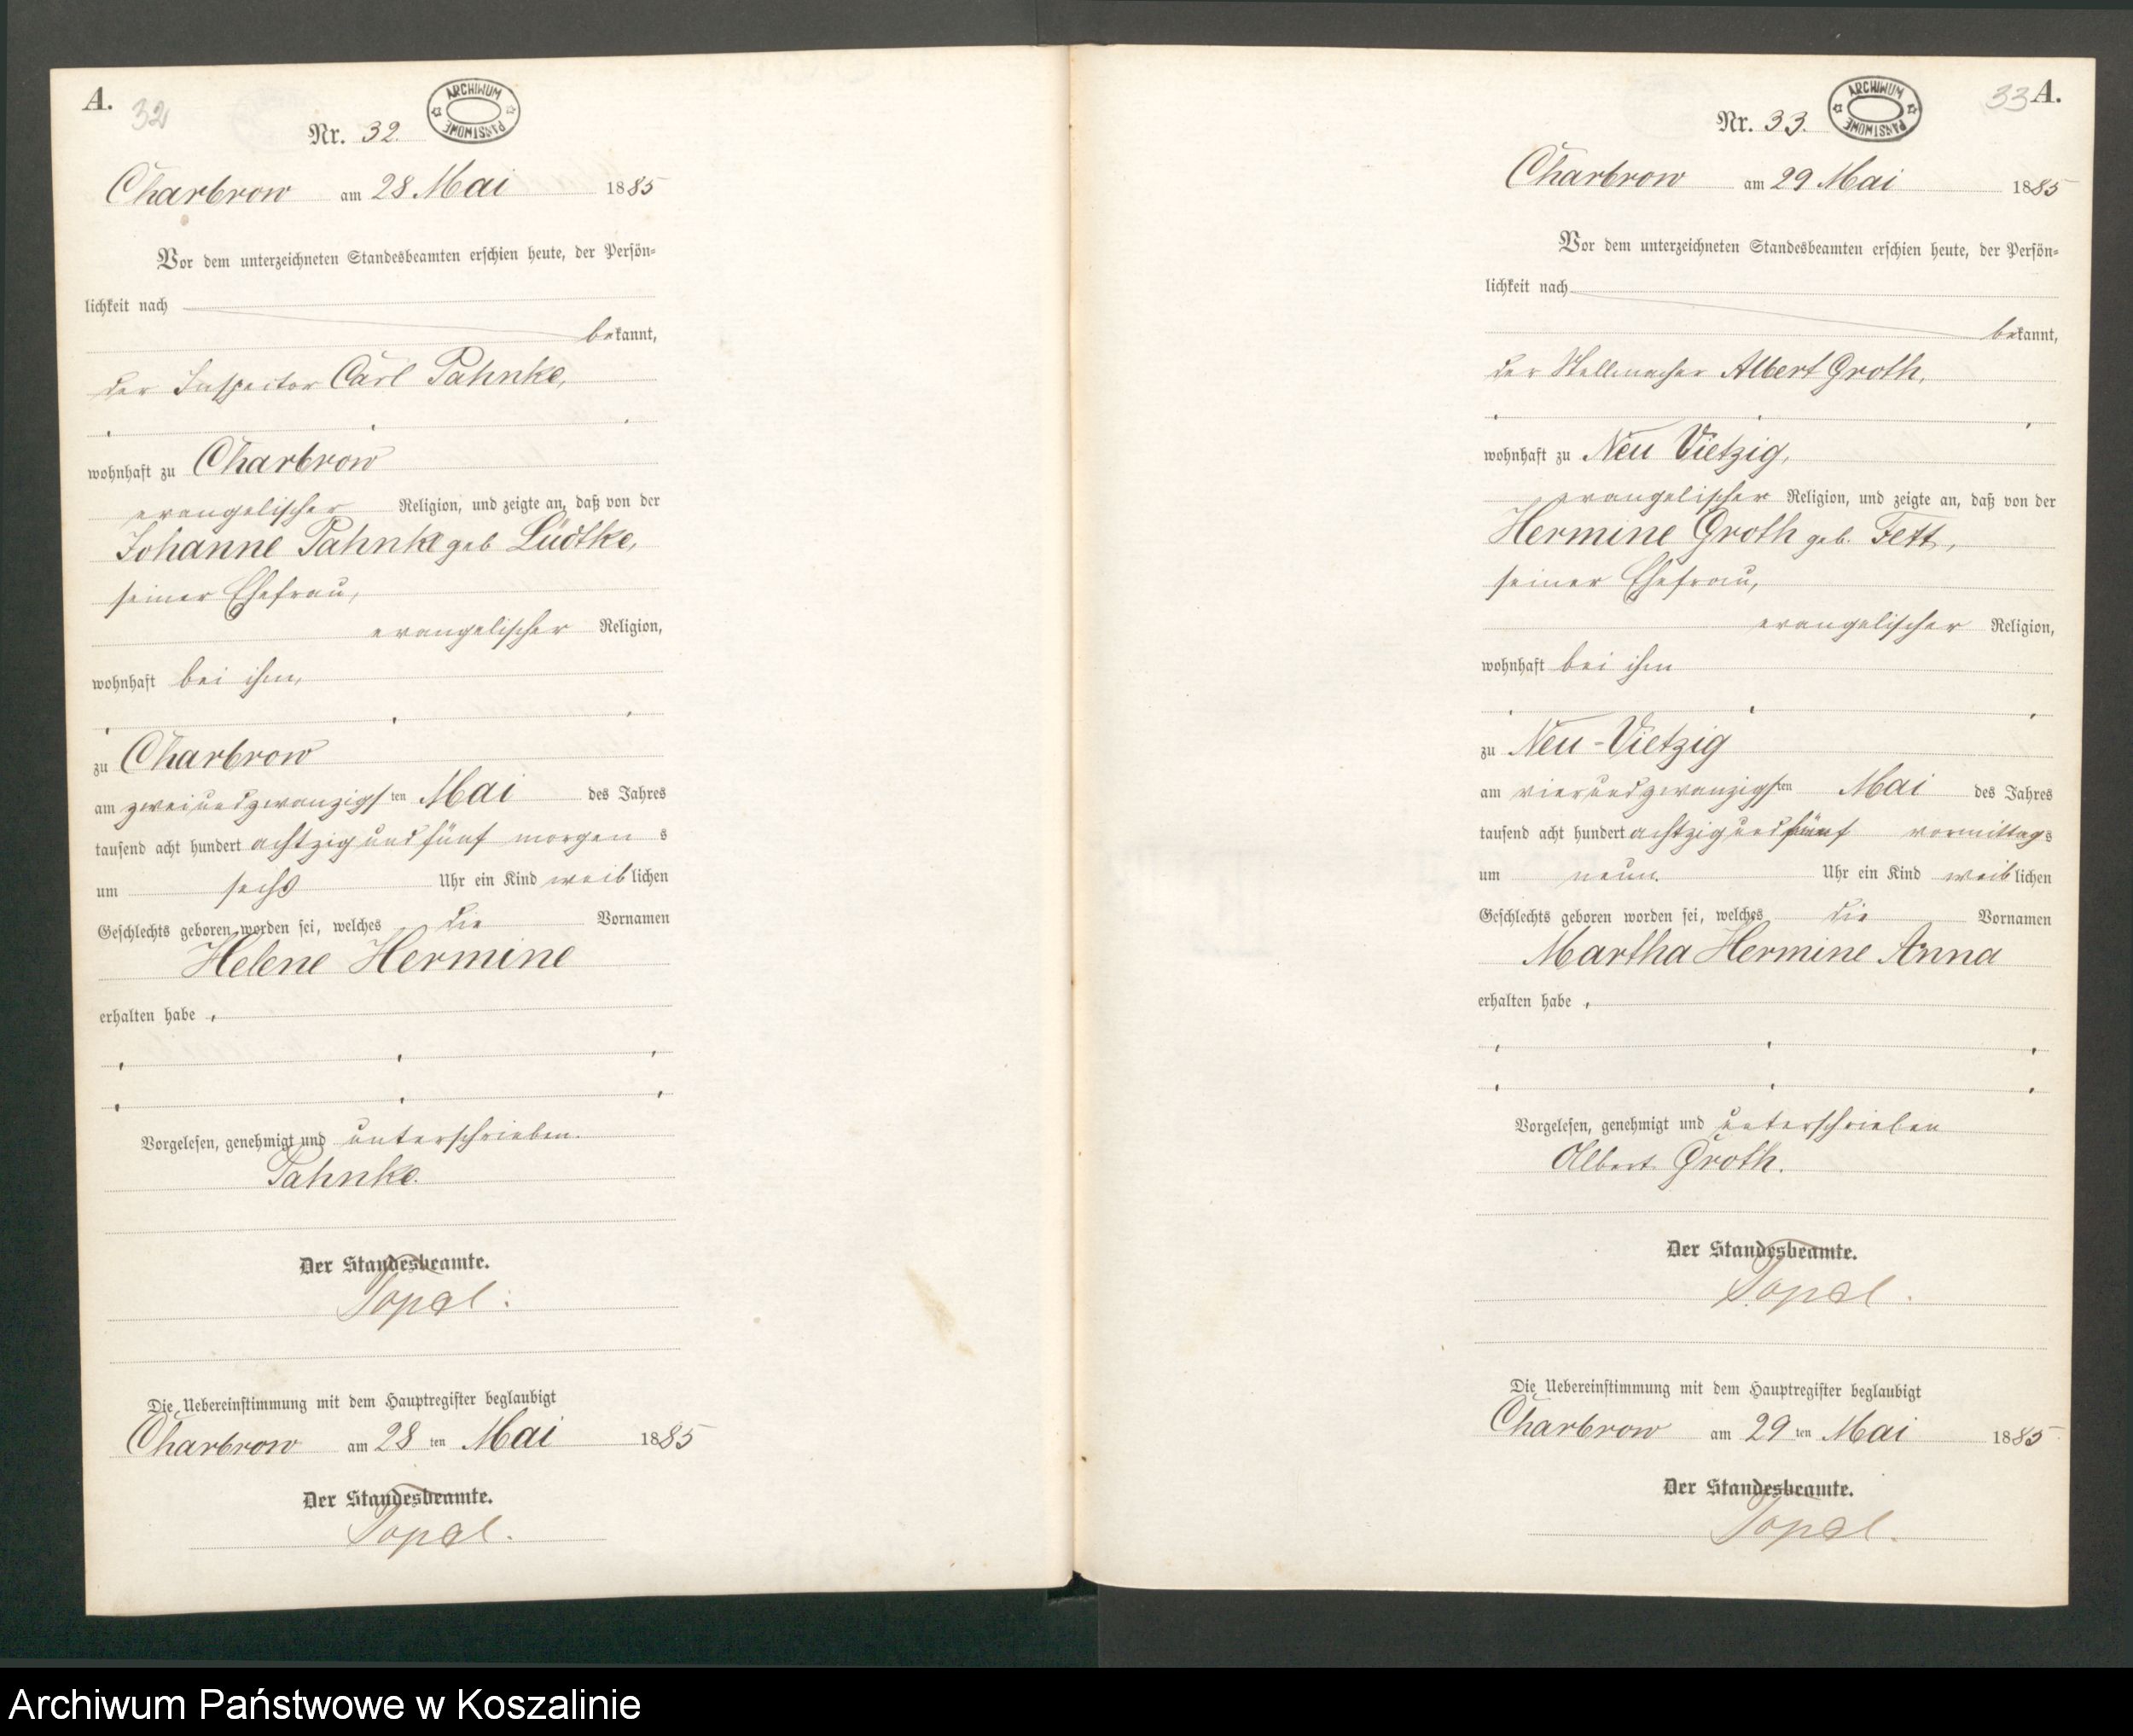 A.
32
Nr. 32.
ARCHIWUM PAŃSTWOWE
Charbrow am 28 Mai 1885
Vor dem unterzeichneten Standesbeamten erschien heute, der Persön=
lichkeit nach
bekannt,
der Inspector Carl Pahnke,
wohnhaft zu Charbrow
evangelischer Religion, und zeigte an, daß von der
Johanne Pahnke geb Lüdtke,
seiner Ehefrau,
evangelischer Religion,
wohnhaft bei ihm,
zu Charbrow
am zweiundzwanzigsten Mai des Jahres
tausend acht hundert achtzig und fünf morgens
um sechs Uhr ein Kind weiblichen
Geschlechts geboren worden sei, welches die Vornamen
Helene Hermine
erhalten habe,
Vorgelesen, genehmigt und unterschrieben.
Pahnke.
Der Standesbeamte.
Die Uebereinstimmung mit dem Hauptregister beglaubigt
Charbrow am 28 ten Mai 1885
Der Standesbeamte.
33 A.
Nr. 33.
ARCHIWUM PAŃSTWOWE
Charbrow am 29 Mai 1885
Vor dem unterzeichneten Standesbeamten erschien heute, der Persön=
lichkeit nach
bekannt,
der Stellmacher Albert Groth,
wohnhaft zu Neu Vietzig,
evangelischer Religion, und zeigte an, daß von der
Hermine Groth geb. Fett,
seiner Ehefrau,
evangelischer Religion,
wohnhaft bei ihm
zu Neu-Vietzig
am vierundzwanzigsten Mai des Jahres
tausend acht hundert achtzig und fünf vormittags
um neun Uhr ein Kind weiblichen
Geschlechts geboren worden sei, welches die Vornamen
Martha Hermine Anna
erhalten habe,
Vorgelesen, genehmigt und unterschrieben
Albert Groth.
Der Standesbeamte.
Die Uebereinstimmung mit dem Hauptregister beglaubigt
Charbrow am 29 ten Mai 1885
Der Standesbeamte.
Archiwum Państwowe w Koszalinie